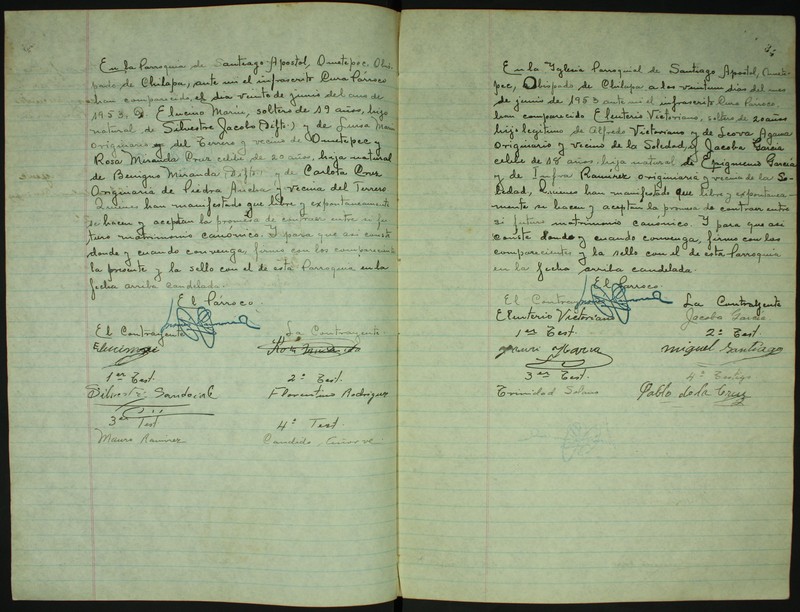 En la Parroquia de Santiago Apostol, Ometepec. Obis-
pado de Chilapa, ante mi el infrascrito Cura Parroco
han comparecido, el dia veinte de junio del año de
1953. Elucino Marin, soltero de 19 años, hijo
natural de Silvestre Jacobo (Difto.) y de Luisa Marin
originario del Terrero y vecino de Ometepec y
Rosa Miranda Cruz celibe de 20 años, hija natural
de Benigno Miranda (Difto.) y de Carlota Cruz
Originaria de Piedra Ancha y vecina del Terrero
Quienes han manifestado que libre y expontaneamente
se hacen y aceptan la promesa de contraer entre si fu-
turo matrimonio canónico. Y para que asi conste
donde y cuando convenga, firmo con los comparecientes
la presente y la sello con el de esta Parroquia en la
fecha arriba candelada.
El Párroco.
El Contrayente
La Contrayente
1er Test.
2º Test.
Silvestre Sandoval
Florentino Rodriguez
3er Test
4º Test.
Mauro Ramirez
Candido
En la Yglesia Parroquial de Santiago Apostol, Omete-
pec, Obispado de Chilapa a los veintiun dias del mes
de junio de 1953 ante mi el infrascrito Cura Párroco,
han comparecido Eleuterio Victoriano, soltero de 20 años
hijo legitimo de Alfredo Victoriano y de Leova
Originario y Vecino de la Soledad, y Jacoba Garcia
celibe de 18 años, hija natural de Epigmenio Garcia
y de Ramirez originaria y vecina de la So-
ledad, Quienes han manifestado que libre y expontanea-
mente se hacen y aceptan la promesa de contraer entre
si futuro matrimonio canónico. Y para que asi
conste donde y cuando convenga, firmo con los
comparecientes y la sello con el de esta Parroquia
en la fecha arriba candelada.
El Párroco.
El Contrayente
La Contrayente
Eleuterio Victoriano
Jacoba Garcia
1er Test.
2º Test.
Miguel Santiago
3er Test.
4º Testigo
Trinidad Solano
Pablo de la Cruz